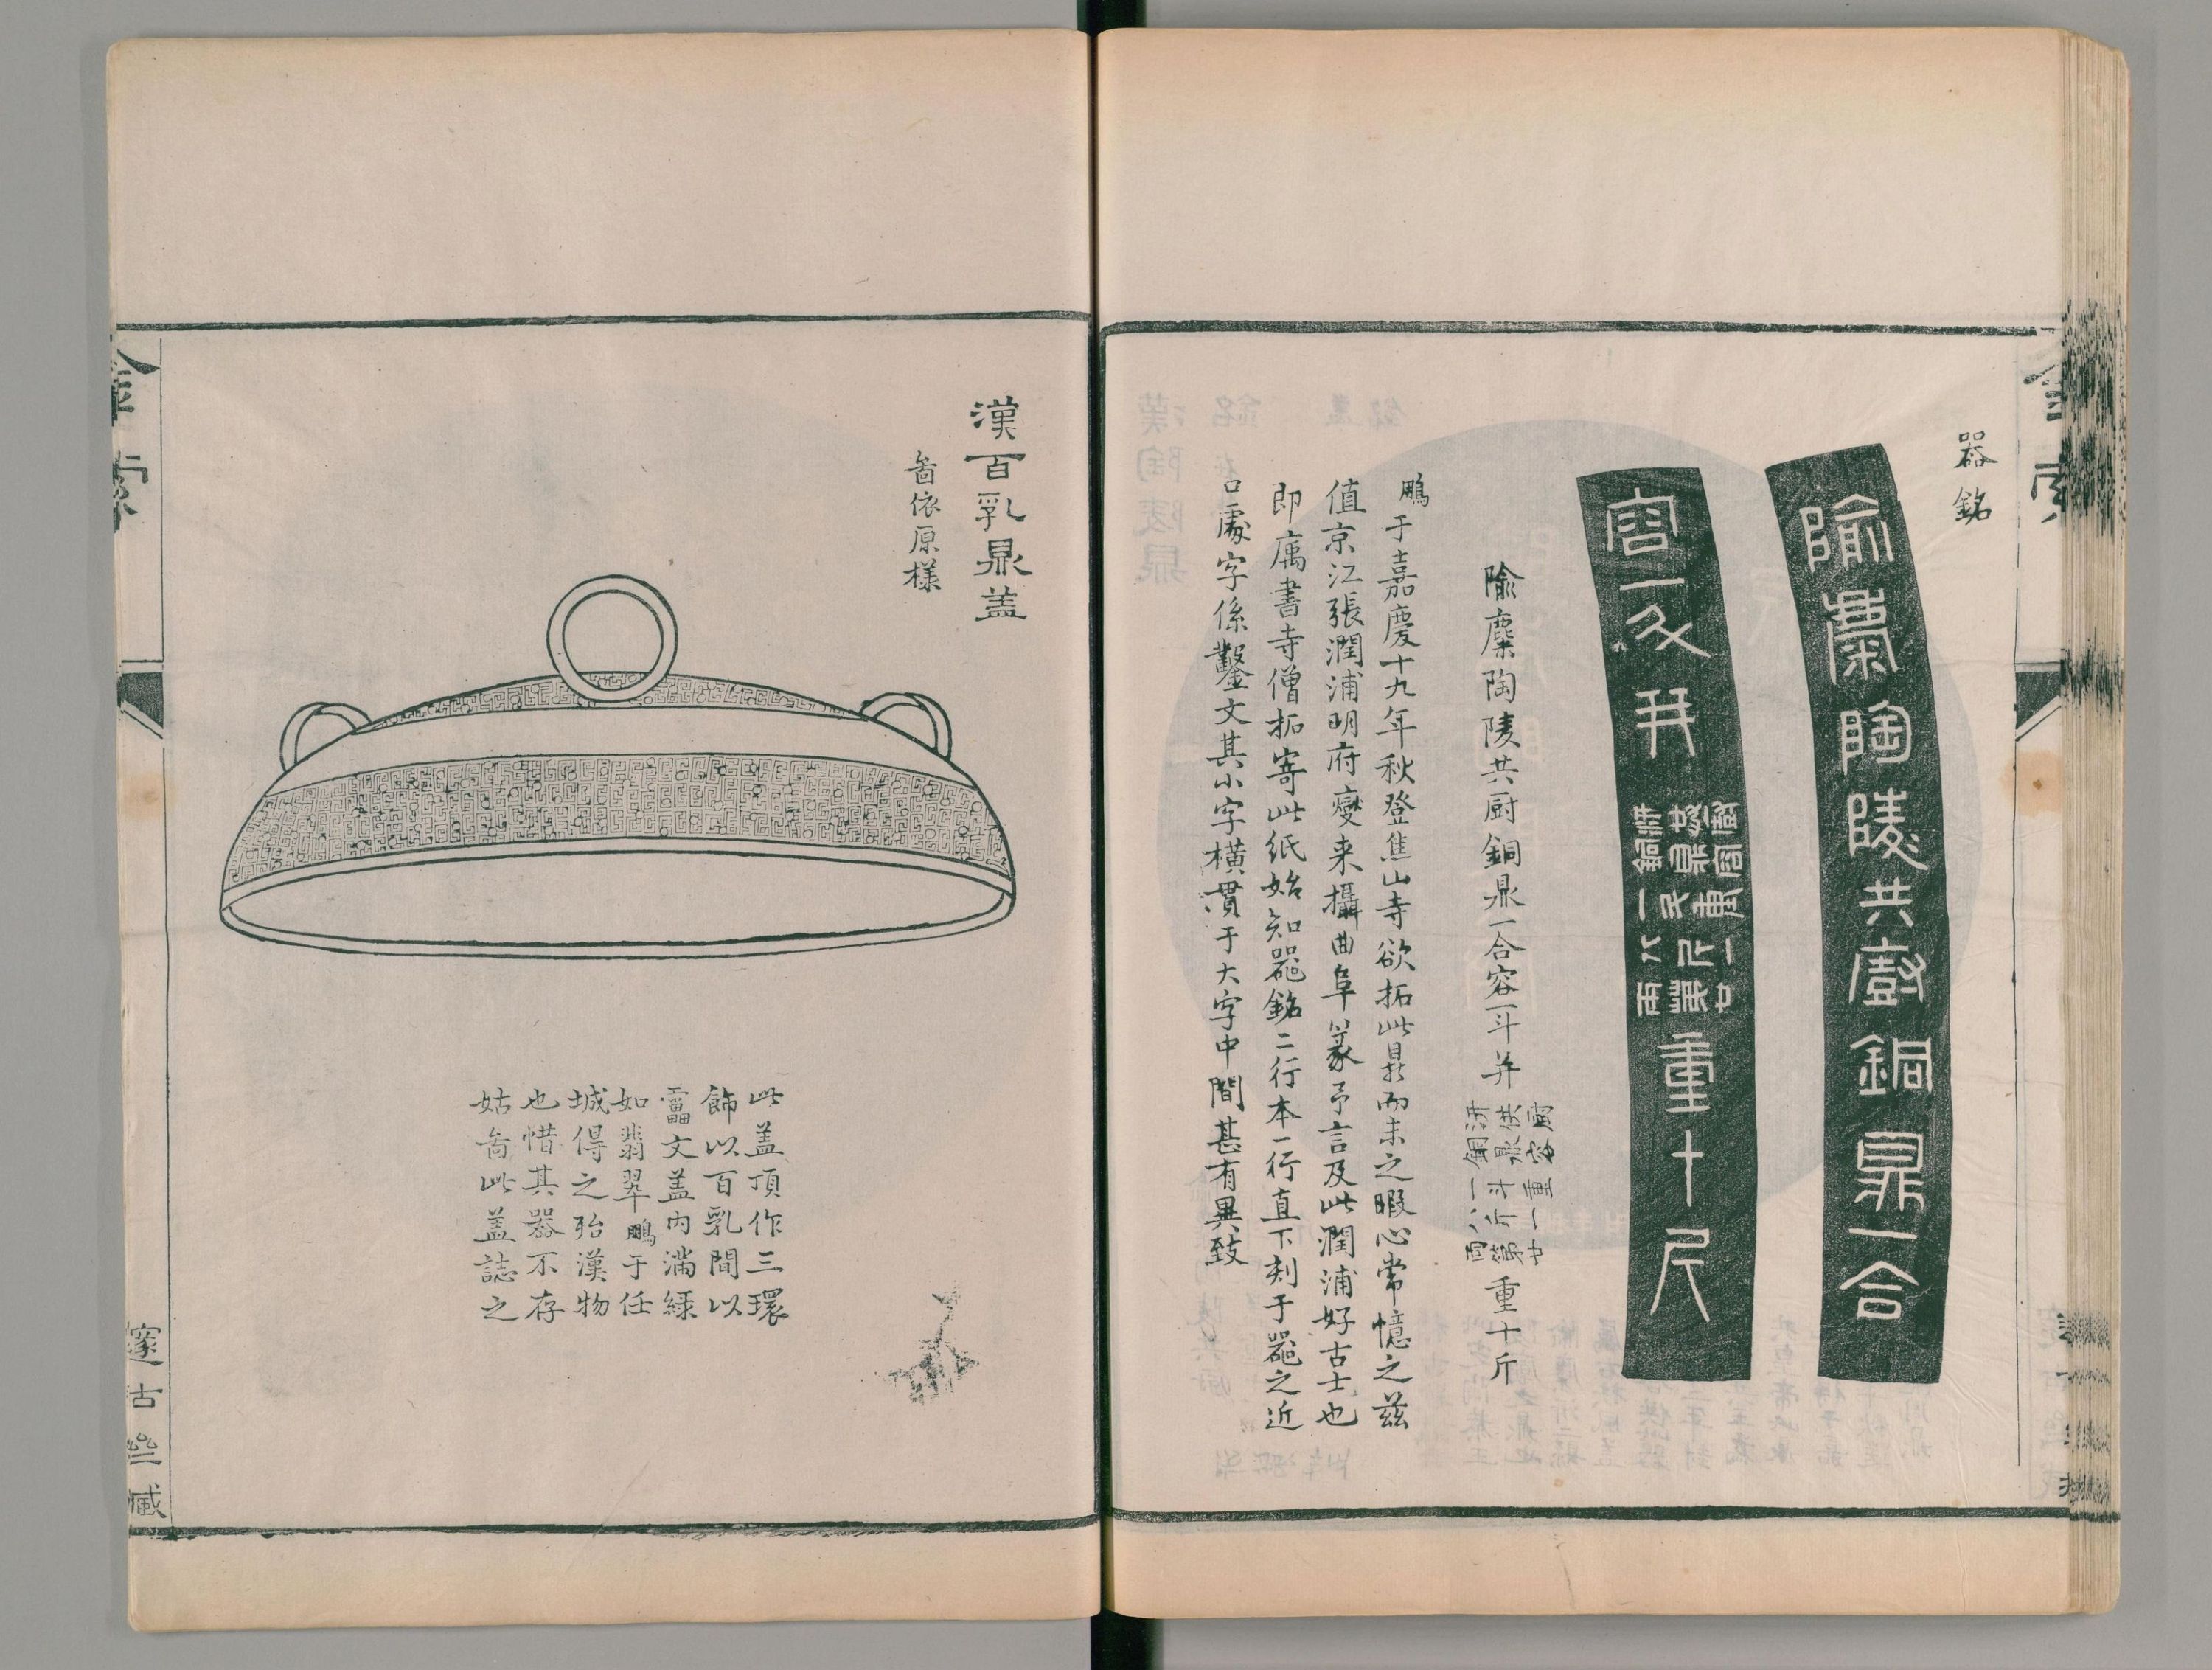 器銘
隃麋陶陵共廚銅鼎一合
容一斗并
廚容重一廿
共鼎斗斤第
汧銅一八兩
重十斤
隃麋陶陵共厨銅鼎一合容一斗并
厨容重一廿
供鼎斗斤第
汧銅一八兩
重十斤
鵬于嘉慶十九年秋登焦山寺欲拓此鼎而未之暇心常憶之茲
值京江張潤浦明府夔来攝曲阜篆予言及此潤浦好古士也
即属書寺僧拓寄此紙始知器銘二行本一行直下刻于器之近
口處字係鑿文其小字橫貫于大字中間甚有異致
漢百乳鼎盖
啚依原樣
此盖頂作三環
飾以百乳間以
靁文盖内滿綠
如翡翠鵬于任
城得之殆漢物
也惜其器不存
姑啚此盖誌之
金索
邃古齋藏